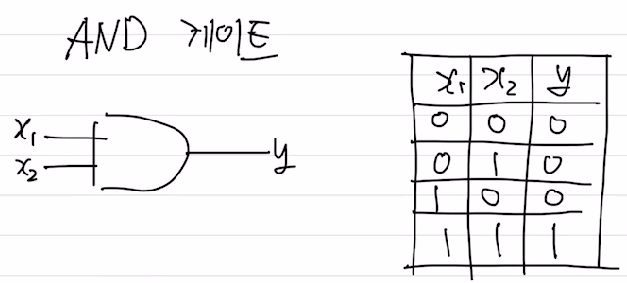 AND 게이트
x₁
x₂ y
x₁ x₂ y
0 0 0
0 1 0
1 0 0
1 1 1